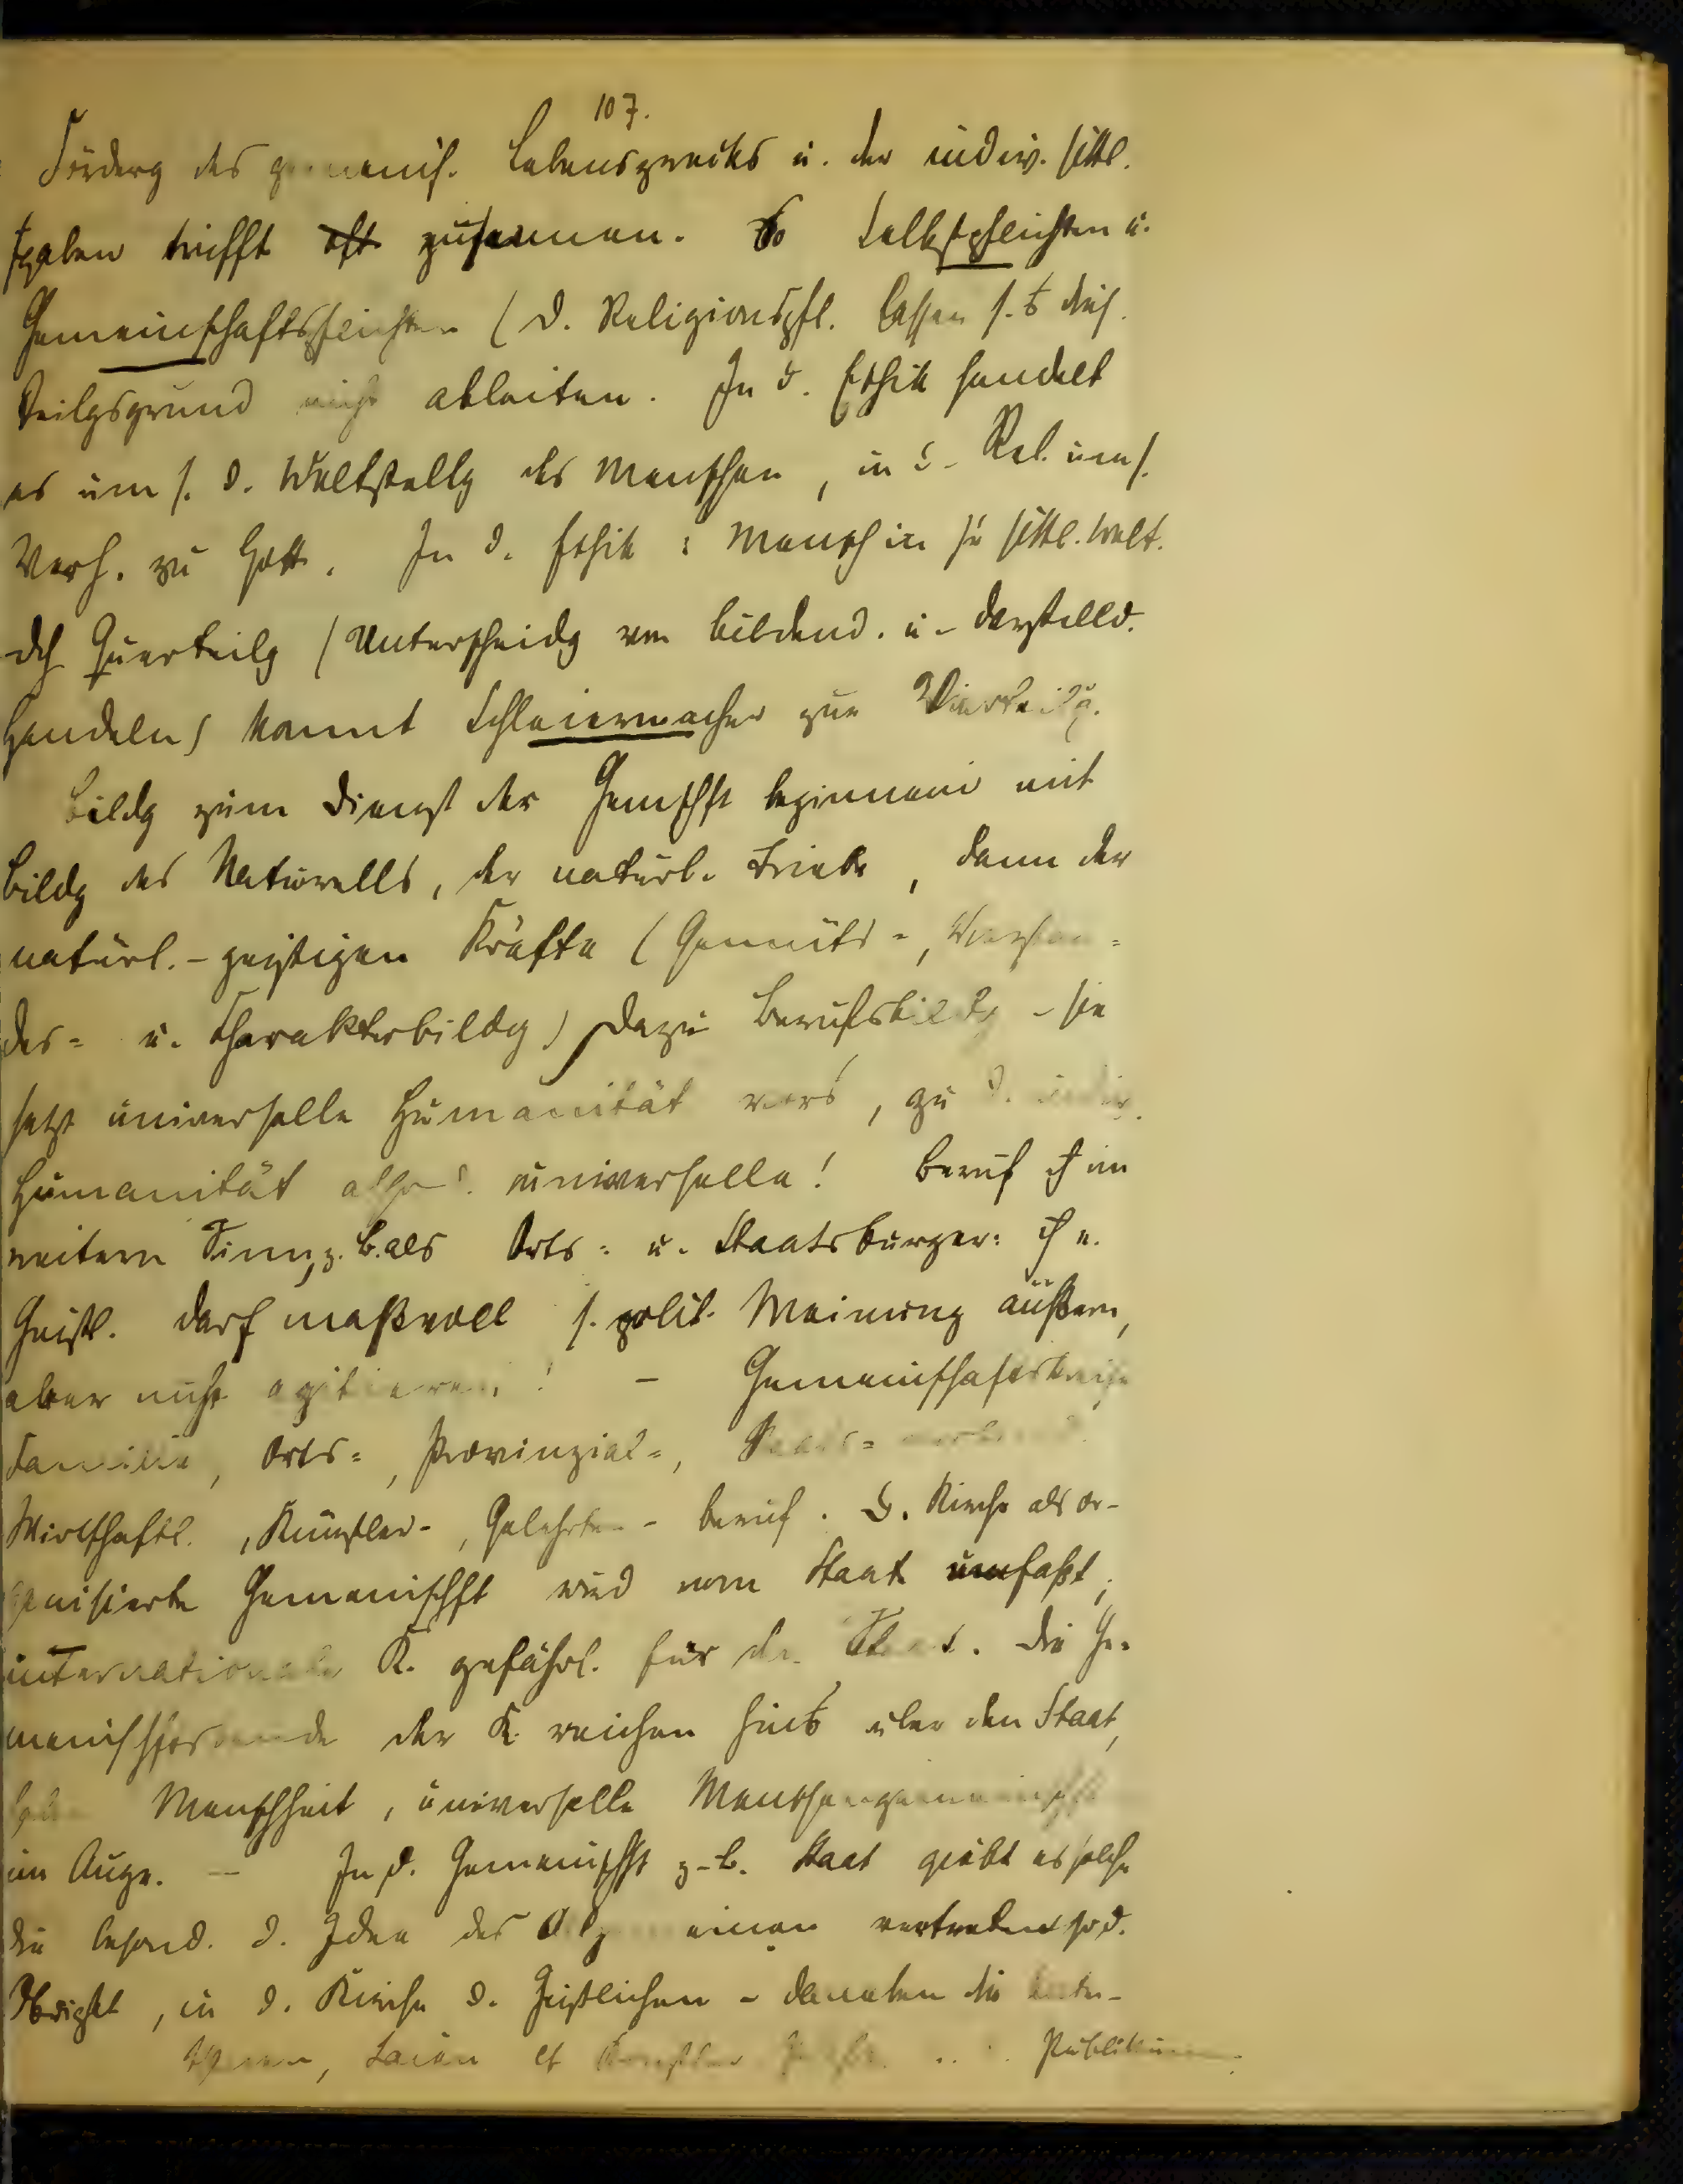 107.
Förderg des gemeins. Lebenszwecks u. der indiv. sittl.
fgaben trifft oft zusammen. So Selbstpflichten u.
Gemeinschaftspflichten (d. Religionspfl. lassen s. aus dies.
Teilgsgrund nicht ableiten. In d. Ethik handelt
es um s. d. Weltstellg des Menschen, in d. Rel. um s.
Verh. zu Gott. In d. Ethik: Mensch in sr sittl. Welt.
Dch Querteilg (Unterscheidg von bildend. u. darstelld.
Handeln) kommt Schleiermacher zur Vierteilg.
Bildg zum Dienst der Gemschft beginnend mit
Bildg des Naturells, der natürl. Triebe, dann der
natürl.-geistigen Kräfte (Gemüts-, Verstan-
des- u. Charakterbildg) dazu Berufsbildg - sie
setzt universelle Humanität vors, zu d. indiv.
Humanität also d. universelle! Beruf ist im
weitern Sinn, z. B. als Orts- u. Staatsbürger: ist e.
Geistl. darf maßvoll s. polit. Meinung äußern,
aber nicht agitieren! - Gemeinschaftskreise
Familie, Orts-, Provinzial-, Staats-
Wirtschaftl., Künstler-, Gelehrten-beruf. D. Kirche als or-
ganisierte Gemeinschft wird vom Staat umfaßt,
internationale K. gefährl. für den Staat. Die Ge-
meinschftsbande der K. reichen hinaus über den Staat,
haben Menschheit, universelle Menschengemeinschft
im Auge. - In d. Gemeinschft z. B. Staat giebt es solche
die besond. d. Idee des Allgemeinen vertreten so d.
Obrigkt, in d. Kirche d. Geistlichen - daneben die Unter-
thanen, Laien et Publikum